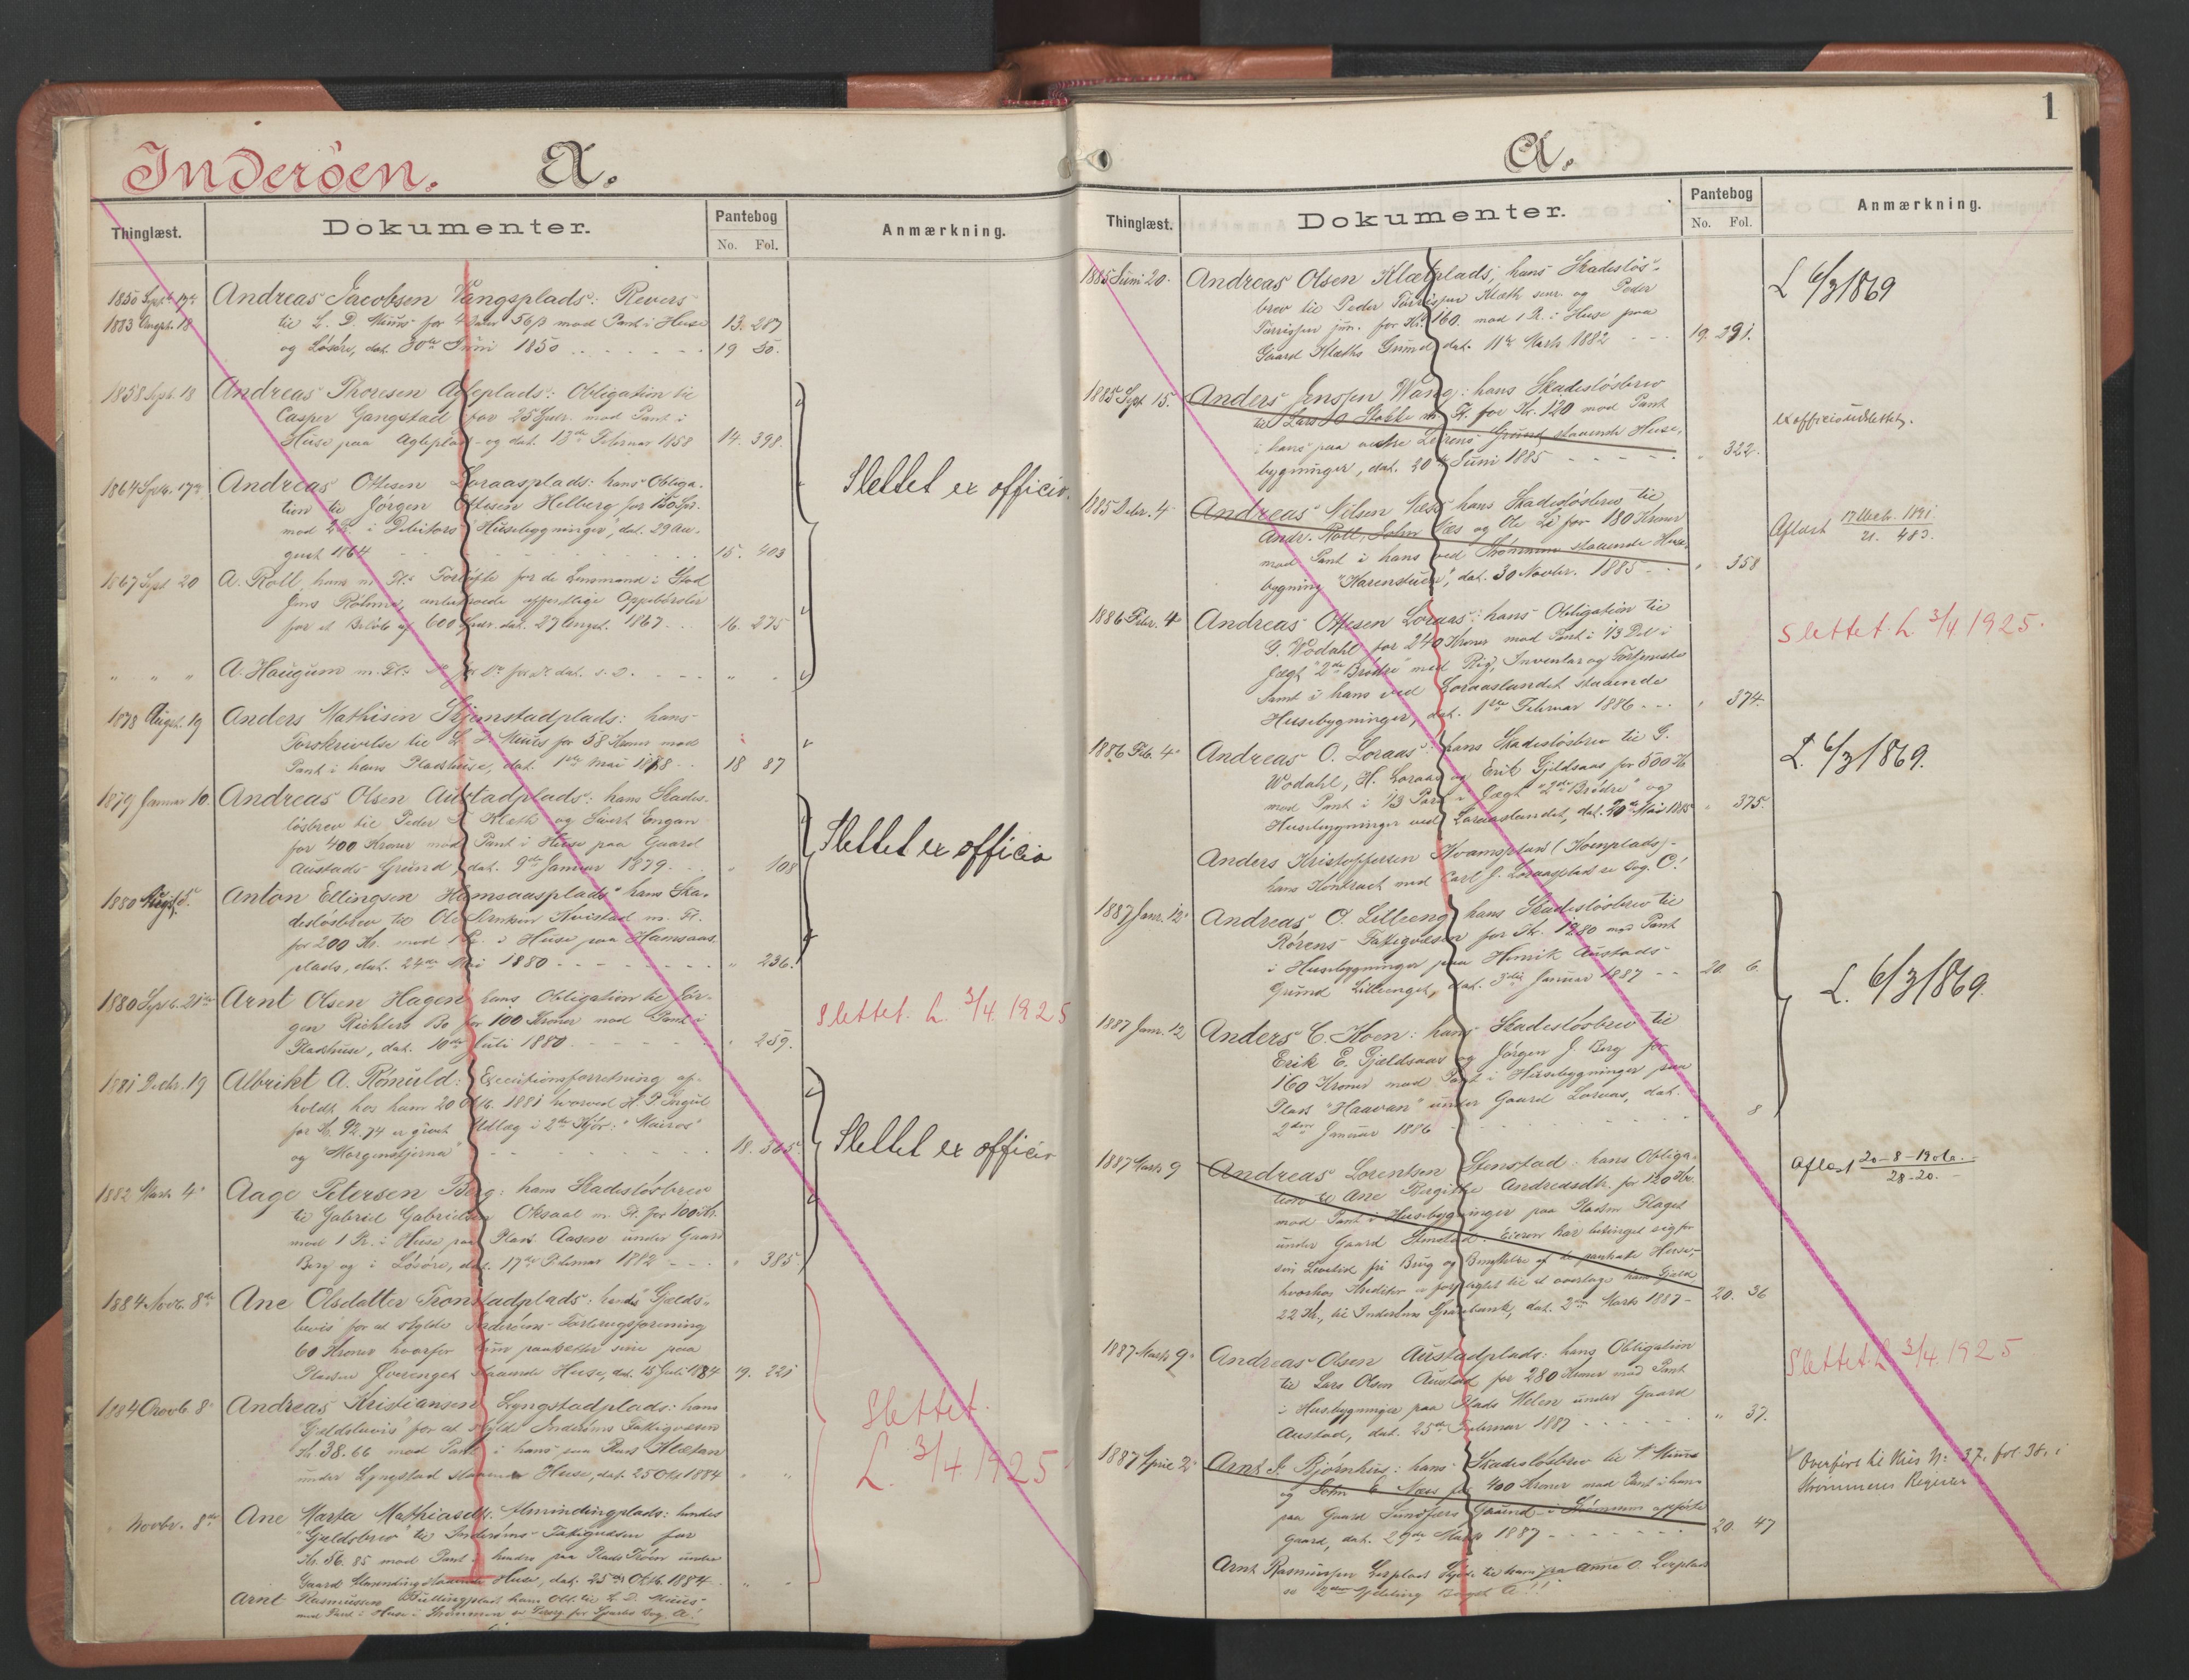 Inderöen. A.
Thinglæst. Dokumenter. Pantebog No. Fol. Anmærkning.
1850 Septb. 17de Andreas Jacobsen Vangsplads: Revers
1883 Augst. 18 til L. D. Müüs for 4 Daler 56 β mod Pant i Huse 13. 287
og Løsøre, dat. 30te Juni 1850 19 50.
1858 Sept. 18 Andreas Thoresen Agleplads: Obligation til
Casper Gangstad for 25 Spdr. mod Pant i
Huse paa Agleplads og dat. 13de Februar 1858 14. 398.
1864 Septr. 17de Andreas Ottesen Loraasplads: hans Obliga-
tion til Jørgen Ottesen Helberg for 150 Spd.
mod 2 Pr. i Debitors Husebygninger, dat. 29 Au-
gust 1864 15. 403
Slettet ex officio.
1867 Sept 20 A. Roll, hans m. Fl.s Forløfte for de Lensmand i Stod
Jens Böhme, anbetroede offentlige Oppebørsler
for et Beløb af 600 Spdr. dat. 27 Augst. 1867 16. 275
" " " A. Haugum m. Fl.s do for do for do dat. s. D. " "
1878 Augst. 19 Anders Mathisen Skjemstadplads: hans
Forskrivelse til L. D. Müüs for 58 Kroner mod
Pant i hans Pladshuse, dat. 1ste Mai 1878 18 87
1879 Januar 10. Andreas Olsen Austadplads: hans Skades-
løsbrev til Peder T. Klæth og Sivert Engan
for 400 Kroner mod Pant i Huse paa Gaard
Austads Grund, dat. 9de Januar 1879 " 108
Slettet ex officio
1880 Augst. 5. Anton Ellingsen Hamsaasplads hans Ska-
desløsbrev til Ole Kvistad m. Fl.
for 200 Kr. mod 1 Pr. i Huse paa Hamsaas-
plads, dat. 24de Mai 1880 " 236.
1880 Septb. 21de Arnt Olsen Hagen hans Obligation til Jør-
gen Richters Bo for 100 Kroner mod Pant i
Pladshuse, dat. 10de Juli 1880 " 259.
Slettet. L. 3/4 1925
1881 Decbr. 19 Albrikt A. Römuld: Executionsforretning af-
holdt hos ham 20 Oktb. 1881 hvorved H. P. Jægtil
for Kr. 92.74 er givet Udlæg i 2de Kjør: "Mairos"
og "Morgenstjerna" 18. 365.
Slettet ex officio
1882 Marts 4. Aage Petersen Berg: hans Skadesløsbrev
til Gabriel Gabrielsen Oksaal m. Fl. for 100 Kr.
mod 1 Pr. i Huse paa Plads Aasen under Gaard
Berg og i Løsøre, dat. 17de Februar 1882 " 385
1884 Novb. 8de Ane Olsdatter Tronstadplads: hendes Gjelds-
bevis for at skylde Inderøens Forbrugsforening
60 Kroner hvorfor hun pantsetter sine paa
Pladsen Qverenget staaende Huse, dat. 15 Juli 1884 19. 221
1884 Novb. 8. Andreas Kristiansen Lyngstadplads: hans
Gjeldsbevis for at skylde Inderøens Fattigvæsen
Kr. 38.66 mod Pant i hans paa Plads Klætan
under Lyngstad staaende Huse, dat. 25 Okt 1884 " "
Slettet.
L. 3/4 1925
Novbr. 8de Ane Marta Mathiasdtr. Almindingplads: hendes
Gjeldsbrev til Inderøens Fattigvæsen for
Kr. 56.85 mod Pant i hendes paa Plads Trøen under
Gaard Alminding staaende Huse, dat. 25de Oktb. 1884. " "
Arnt Rasmussen Büllingplads hans Obl. til L. D. Müüs
mod Pant i Huse i Strømmen se for Sparbo Bog A!
1
A.
Thinglæst. Dokumenter. Pantebog No. Fol. Anmærkning.
1885 Juni 20. Andreas Olsen Klætplads; hans Skadesløs-
brev til Peder Tørrissen Klæth senr. og Peder
Tørrissen jun. for Kr. 160. mod 1 Pr. i Huse paa
Gaard Klæths Grund dat. 11te Marts 1882 19. 291.
L 6/3 1869
1885 Sept 15. Anders Jenssen Wang: hans Skadesløsbrev
til Lars O Stokke m. Fl. for Kr. 120 mod Pant
i hans paa vestre Grund staaende Huse-
bygninger, dat. 30te Juni 1885 " 322.
ex officio udslettet.
1885 Debr. 4 Andreas Nilsen Næss hans Skadesløsbrev til
Andr. Roll, John Næs og Ole Li for 180 Kroner
mod Pant i hans ved Strømmen staaende Huse-
bygning "Karenstuen", dat. 30 Novbr. 1885 " 358
Aflæst 17 Marts 1891. 21. 483.
1886 Febr. 4 Andreas Ottesen Loraas: hans Obligation til
G. Wodahl for 240 Kroner mod Pant i 1/3 Del i
Jægt "2de Brødre" med Rig, Inventar og Fortjeneste
samt i hans ved Loraaslandet staaende
Husebygninger, dat. 1ste Februar 1886 " 374.
Slettet. L. 3/4 1925.
1886 Feb. 4 Andreas O. Loraas: hans Skadesløsbrev til G.
Wodahl, H. Loraas og Erik Gjeldsaas for 500 Kr
mod Pant i 1/3 Part i Jægt "2de Brødre" og
Husebygninger ved Loraaslandet, dat. 20de Mai 1885 " 375.
L. 6/3 1869.
Anders Kristoffersen Kvamsplads (Hoenplads)
hans Kontract med Carl J. Loraasplads se Bog C!
1887 Janr. 12. Andreas O. Lilleeng hans Skadesløsbrev til
Rørens Fattigvæsen for Kr. 1280 mod Pant
i Husebygninger paa Henrik Austads
Grund Lilleenget, dat. 3die Januar 1887 20. 6.
L. 6/3 1869.
1887 Janr. 12 Anders C. Hoen: hans Skadesløsbrev til
Erik E. Gjældsaas og Jørgen J. Berg for
160 Kroner mod Pant i Husebygninger paa
Plads "Haavan" under Gaard Loraas, dat.
2den Januar 1886 " 8
1887 Marts 9 Andreas Lorentsen Stenstad: hans Obliga-
tion til Ane Bergitte Andreasdtr. for 120 Kr.
mod Pant i Husebygninger paa Pladsen Flaget
under Gaard Stenstad. Eieren har betinget sig for
sin Levetid fri Brug og Benyttelse af de pantsatte Huse,
hvorhos Kreditor er forpligtet til at overtage hans Gjeld
22 Kr., til Inderøens Sparebank, dat. 2den Marts 1887 20. 36
Aflæst 20-8-1906. 28-20.
1887 Marts 9. Andreas Olsen Austadplads: hans Obligation
til Lars Olsen Austad for 280 Kroner mod Pant
i Husebygninger paa Plads Melen under Gaard
Austad, dat. 25de Februar 1887 " 37.
Slettet L 3/4. 1925
1887 April 2 Arnt J. Bjørnhus: hans Skadesløsbrev til Müüs
og John E Næss for 400 Kroner mod Pant i hans
paa Gaard Sundfærs Grund i Strømmen opførte
Gaard, dat. 29de Marts 1887 20. 47
Overført til Hus N: 37. fol. 38. i
Strømmens Register
Arnt Rasmussen Lorplads til ham fra Anne O. Lorplads
se 2den Afdeling Bogst. A!!